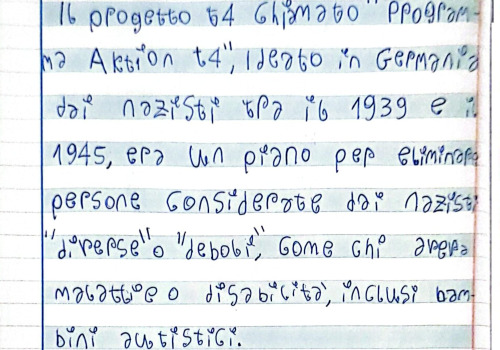 Il progetto t4 chiamato "Program-
ma Aktion t4", ideato in Germania
dai nazisti tra il 1939 e il
1945, era un piano per eliminare
persone considerate dai nazisti
"diverse" o "deboli", come chi aveva
malattie o disabilità, inclusi bam-
bini autistici.